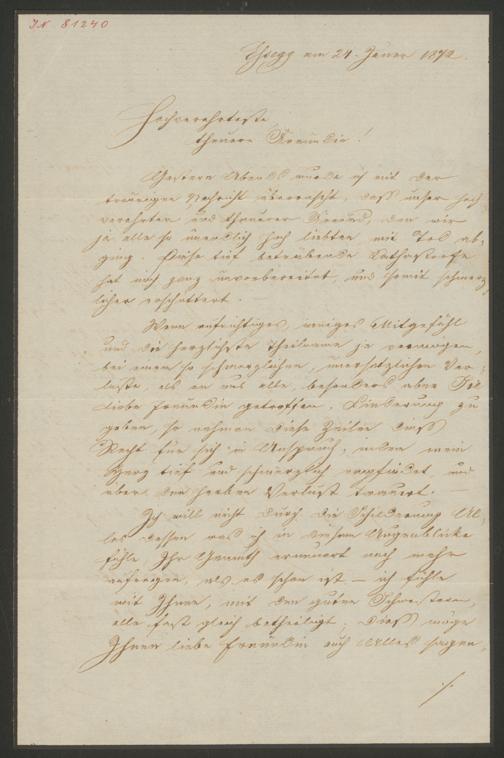 IN 81240
Essegg am 24. Jäner 1872.
Hochverehrteste,
theuere Freundin!
Gestern Abends wurde ich mit der
traurigen Nachricht überrascht, daß unser hoch
verehrter und theurer Freund, den wir
ja alle so unendlich hoch liebten mit Tod ab-
ging. Diese tief betrübende Katastrofe
hat mich ganz unvorbereitet, und somit schmerz-
licher erschüttert.
Wenn aufrichtiges, inniges Mitgefühl
und die herzlichste Theilname je vermögen,
bei einem so schmerzlichen, unersetzlichen Ver-
luste, als er uns alle, besonders aber Sie
liebe Freundin getroffen, Linderung zu
geben, so nehmen diese Zeilen das
Recht für sich in Anspruch, indem mein
Herz tief und schmerzlich empfindet und
über den herben Verlust trauert. —
Ich will nicht durch die Schilderung Al-
les dessen was ich in diesem Augenblicke
fühle, Ihr Gemüth erneuert noch mehr
aufregen, als es schon ist — ich fühle
mit Ihnen, mit den guten Schwestern,
alle fast gleich betheiligt; dieß möge
Ihnen liebe Freundin auch Alles sagen,
./.